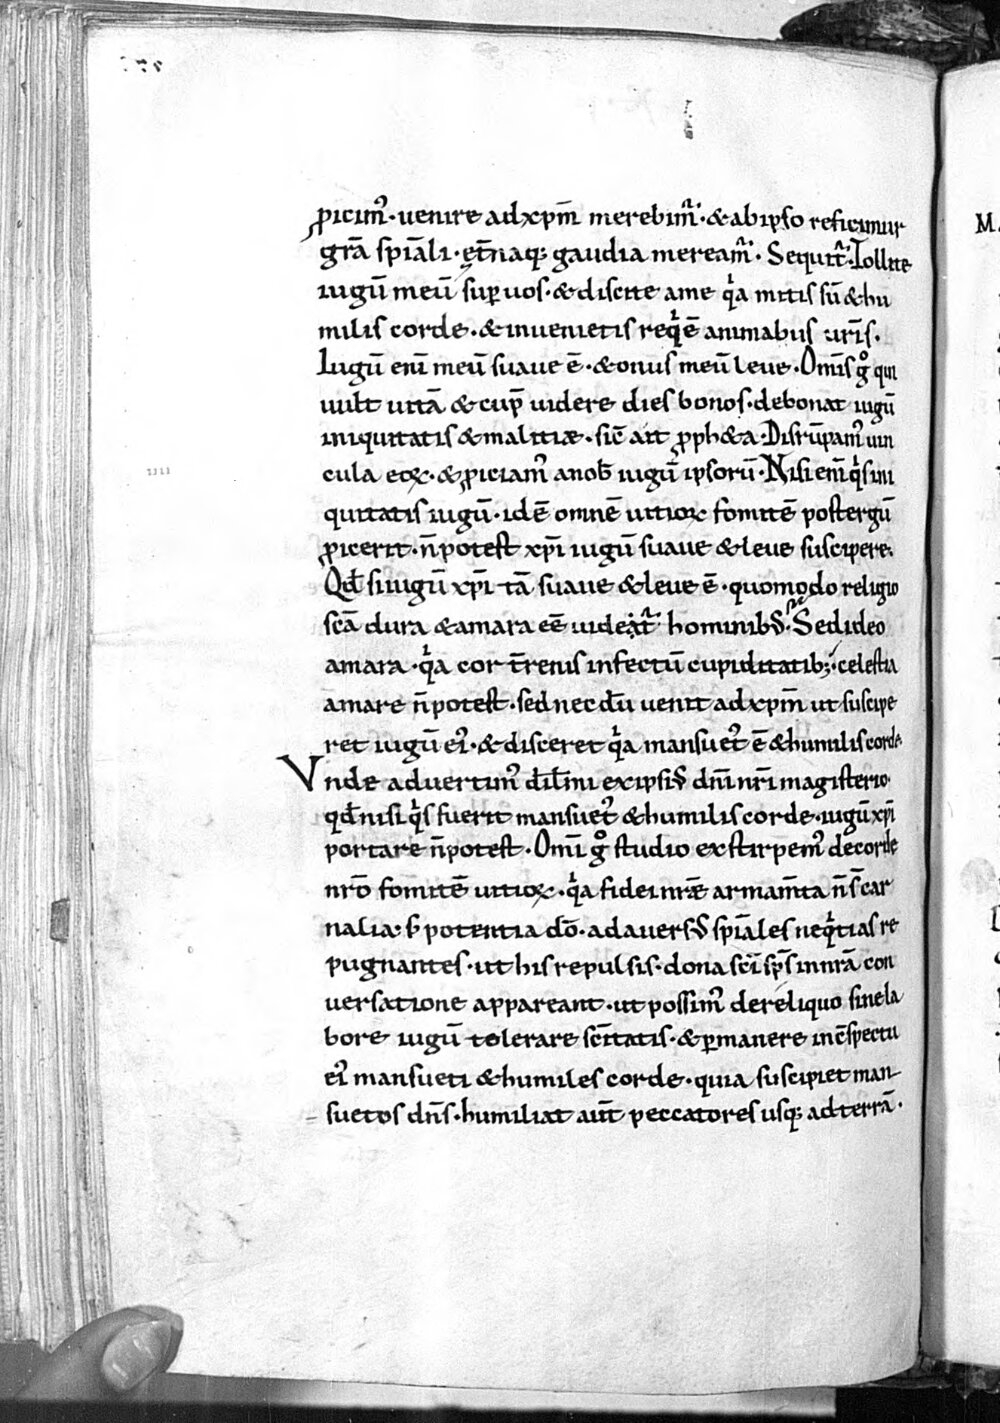 ꝓicim᾽· uenire ad xp̄m merebim᷑· & ab ipso reficimur
gr̄a sp̄iali· et̄naq; gaudia meream᷑· Sequit᷑· Tollite
iugū meū sup̱ uos· & discite a me qͥa mitis sū & hu
milis corde· & inuenietis reqͥē animabus uris̄·
Iugū eni̅ meū suaue ē· & onus meū leue· Omi̅s gͦ qui
uult uitā & cup̄ uidere dies bonos· deponat iugū
iniquitatis & malitiæ· sic̄ ait ꝓph&a· Disrūpam᾽ uin
cula eoꝝ· & ꝓiciam᾽ a nob̄ iugū ipsorū· Nisi eni̅ qͥs ini
quitatis iugū· idē omnē uitioꝝ fomitē postergū
ꝓicerit· n̄ potest xp̄i iugū suaue & leue suscipere·
Qd̄ si iugū xp̄i tā suaue & leue ē· quomodo religio
sc̄a dura & amara eē uideat᷑ hominibꝰ· Sed ideo
amara· qͥa cor t̄renis infectū cupiditatib;· celestia
amare n̄ potest· sed necdū uenit ad xp̄m ut suscipe
ret iugū ei᾽· & disceret qͥa mansuet᾽ ē & humilis corde
Vnde aduertim᾽ dil̄mi ex ipsiꝰ dn̄i nr̄i magisterio·
qd̄ nisi qͥs fuerit mansuet᾽ & humilis corde· iugū xp̄i
portare n̄ potest· Omi̅ gͦ studio exstirpem᾽ de corde
nrō fomitē uitioꝝ· qͥa fidei nr̄æ armam̄ta n̄ s̄ car
nalia· s; potentia dō· aduersꝰ sp̄iales neqͥtias re
pugnantes· ut his repulsis· dona sc̄i sp̄s in nr̄a con
uersatione appareant· ut possim᾽ de reliquo sine la
bore iugū tolerare sc̄itatis· & p̱manere in c̄spectu
ei᾽ mansueti & humiles corde· quia suscipiet man
suetos dn̄s· humiliat aūt peccatores usq; ad terrā·